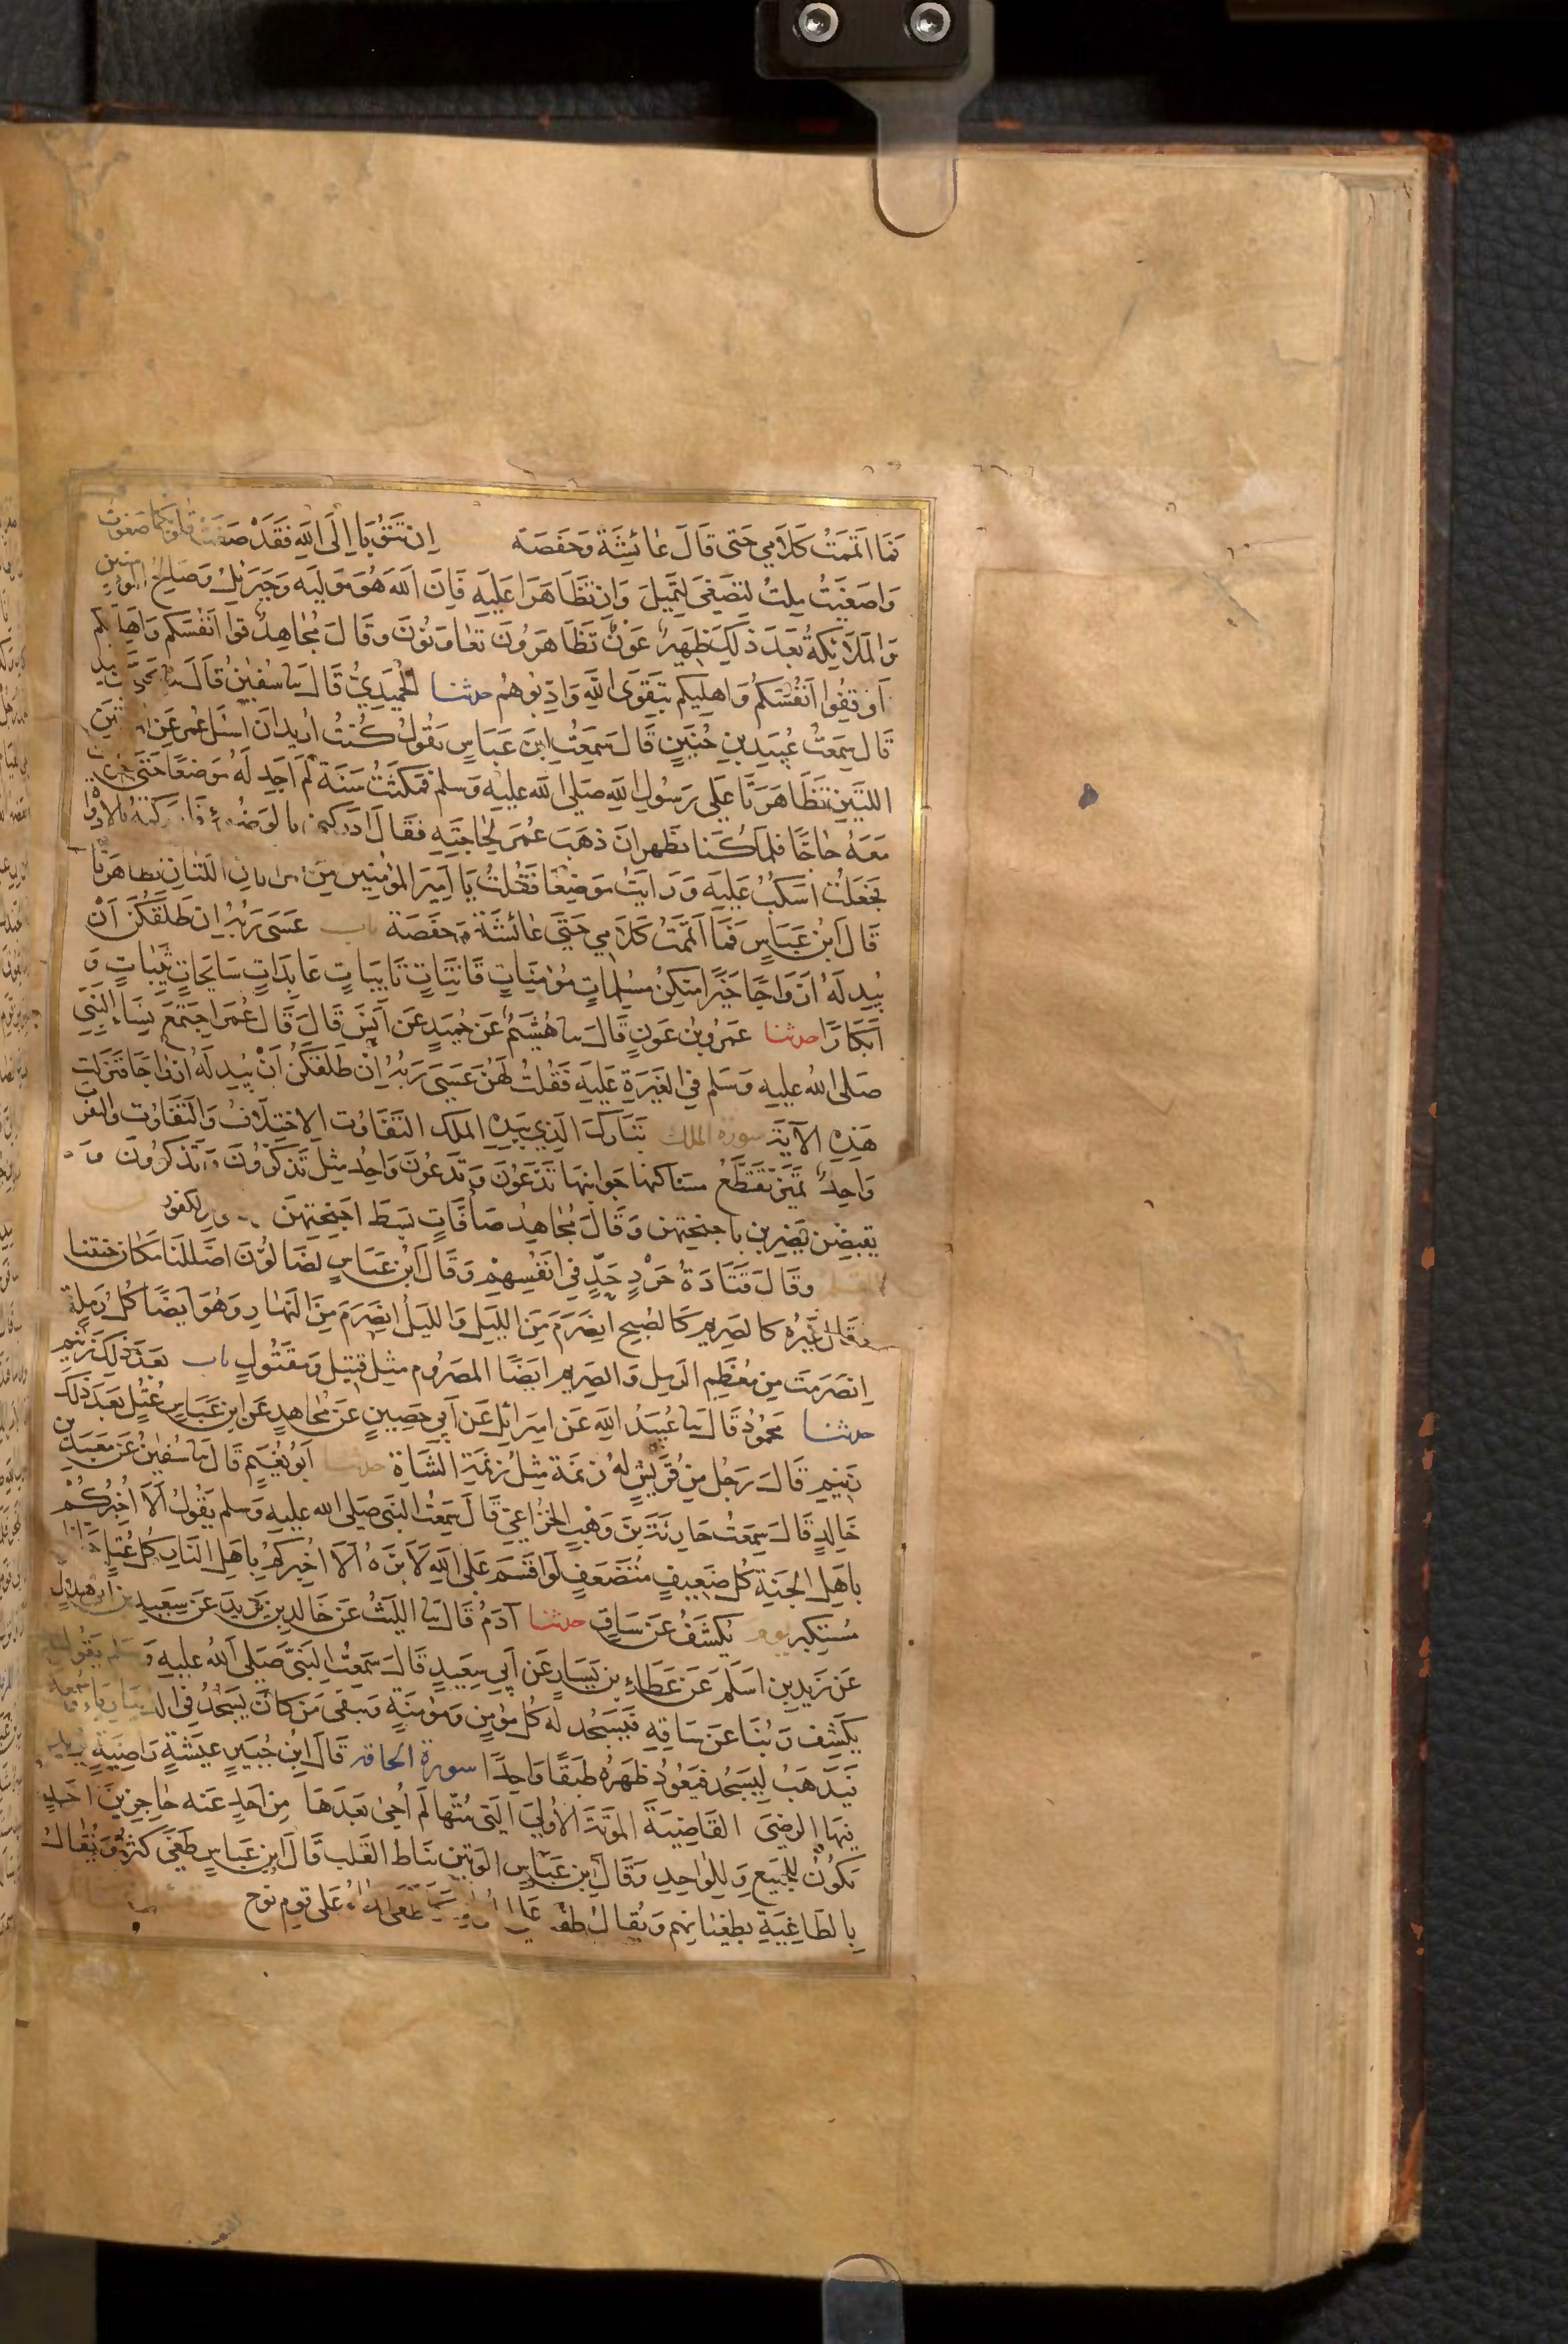 فَمَا اَتْمَمْتُ كَلَامِي حَتَّى قَالَ عَائِشَةُ وَحَفْصَة اِنْ تَتُوْبَا اِلَى اللّٰهِ فَقَدْ صَغَتْ قلوبكما صغوت
وَاصْغَيْتُ مِلْتُ لِتَصْغَى لِتَمِيلَ وَاِنْ تَظَاهَرَا عَلَيْهِ فَاِنَّ اللّٰهَ هُوَ مَوْلَيهُ وَجِبْرَئِيلُ وَصَالِحُ المؤمنين
وَالْمَلَائِكَةُ بَعْدَ ذٰلِكَ ظَهِيرٌ عَوْنٌ تَظَاهَرُونَ تَعَاوَنُوْنَ وَقَالَ مُجَاهِدٌ قُوا اَنْفُسَكُم وَاَهليكم
اَوْقِفُوا اَنْفُسَكُمْ وَاَهْلِيكُم بِتَقْوَى اللّٰهِ وَاَدِّبُوهُمْ حدثنا الْحُمَيْدِيُّ قَالَ ثنا سُفْيٰنُ قَالَ ثنا يحيى
قَالَ سَمِعْتُ عُبَيْدِ بْنِ حُنَيْنٍ قَالَ سَمِعْتُ ابْنَ عَبَّاسٍ يَقُولُ كُنْتُ اُرِيدُ اَنْ اَسْئَلَ عُمَرَ عَنِ
اللَّتَيْنِ تَظَاهَرَتَا عَلَى رَسُولِ اللّٰهِ صَلَى اللّٰه عَلَيْهِ وَسَلم فَمَكَثْتُ سَنَةً لَمْ اَجِدْ لَهُ مَوْضِعًا حَتَّى خرجت
مَعَهُ حَاجًّا فَلَمَّا كُنَّا بظهران ذَهَبَ عُمَرُ لِحَاجَتِهِ فَقَالَ اَدْرِكْنِي بالوَضُوء فادركته بالاداوة
فَجَعَلْتُ اَسْكُبُ عَلَيْهِ وَرَاَيْتُ مَوْضِعًا فَقُلْتُ يَا اَمِيرَ الْمُؤْمِنِينَ مَنِ اللَّتَانِ تظاهرتا
قَالَ ابْنُ عَبَّاسٍ فَمَا اَتْمَمْتُ كَلَامِي حَتَّى عَائِشَةُ وَحَفْصَة باب عَسَى رَبُّهُ اِنْ طَلَّقَكُنَّ اَنْ
يُبْدِلَهُ اَزْوَاجًا خَيْرًا مِنْكُنَّ مُسْلِمَاتٍ مُؤْمِنَاتٍ قَانِتَاتٍ تَائِبَاتٍ عَابِدَاتٍ سَايِحَاتٍ ثَيِّبَاتٍ وَ
اَبْكَارًا حدثنا عَمْرُو بْنُ عَوْنٍ قَالَ ثنا هُشَيْمٌ عَنْ حُمَيْدٍ عَنْ اَنَسٍ قَالَ قَالَ عُمَرُ اجْتَمَعَ نِسَاءُ النَّبِي
صَلى اللّٰه عليهِ وَسَلم فِي الْغَيْرَةِ عَلَيْهِ فَقُلْتُ لَهُنَّ عَسَى رَبُّهُ اِنْ طَلَّقَكُنَّ اَنْ يُبْدِلَهُ اَزْوَاجًا فَنَزَلَتْ
هٰذِهِ الْآيَة سورة الملك تَبَارَكَ الَّذِي بِيَدِهِ الْمُلْكُ التَّفَاوُت الِاخْتِلَافُ وَالتَّفَاوُت والتفوت
وَاحِدٌ تَمَيَّزُ تَقَطَّعُ مناكبها جوانبها تَدَّعُوْنَ وَتَدْعُوْنَ وَاحِدٌ مِثْلَ تَذَّكَّرُوْنَ وَتَذْكُرُوْنَ
يقبضن يَضْرِبن بِاَجْنِحَتِهِنَّ وَقَالَ مُجَاهِدٌ صَافَّاتٍ بَسْطُ اَجْنِحَتِهِنَّ
وَقَالَ قَتَادَةُ حَرْدٍ جِدٍّ فِي اَنْفُسِهِمْ وَقَالَ ابْنُ عَبَّاسٍ لَضَالُّوْنَ اَضْلَلْنَا مَكَانَ جنتنا
وَقَالَ غَيْرُهُ كالصَرِيمِ كَالصُّبْحِ انْصَرَمَ مِنَ اللَّيْلِ وَاللَّيْلُ انْصَرَمَ مِنَ النَّهَارِ وَهُوَ اَيْضًا كُلُّ رَمْلَةٍ
اِنْصَرَمَتْ مِنْ مُعْظَمِ الرَّمْلِ وَالصَّرِيمُ اَيْضًا الْمَصْرُوم مِثْلَ قَتِيلٍ وَمَقْتُولٍ باب بَعْدَ ذٰلِكَ زَنِيمٍ
حدثنا مَحْمُودٌ قَالَ ثنا عُبَيْدُ اللّٰهِ عَنْ اِسْرَائِلَ عَنْ اَبِي حَصِيْنٍ عَنْ مُجَاهِدٍ عَنِ ابْنِ عَبَّاسٍ عُتُلٍّ بَعْدَ ذٰلِكَ
زَنِيمٍ قَالَ رَجُلٌ مِنْ قُرَيْشٍ لَهُ زَنَمَةٌ مِثْلُ زَنَمَةِ الشَّاةِ حدثنا اَبُو نُعَيْمٍ قَالَ ثنا سُفْيٰنُ عَنْ مَعْبَدِ بن
خَالِدٍ قَالَ سَمِعْتُ حَارِثَةَ بْنَ وَهْبٍ الْخُزَاعِيَّ قَالَ سَمِعْتُ النَّبِيَّ صَلى اللّٰه عليهِ وَسَلم يَقُوْلُ اَلَا اُخْبِرُكُمْ
بِاَهْلِ الْجَنَّةِ كُلُّ ضَعِيفٍ مُتَضَعَّفٍ لَوْ اَقْسَمَ عَلَى اللّٰهِ لَاَبَرَّهُ اَلَا اُخْبِرُكُمْ بِاَهْلِ النَّارِ كُلُّ عُتُلٍّ جواظ
مُسْتَكْبِر يوم يُكْشَفُ عَنْ سَاقٍ حدثنا آدَمُ قَالَ ثنا اللَّيْثُ عَنْ خَالِدِ بْنِ يَزِيدَ عَنْ سَعِيدِ بن ابى هلال
عَنْ زَيْدِ بْنِ اَسْلَمَ عَنْ عَطَاءِ بْنِ يَسَارٍ عَنْ اَبِي سَعِيدٍ قَالَ سَمِعْتُ النَّبِيَّ صَلى اللّٰه عليهِ وَسَلم يَقُولُ
يَكْشِفُ رَبُّنَا عَنْ سَاقِهِ فَيَسْجُدُ لَهُ كُلُّ مُؤْمِنٍ وَمُؤْمِنَةٍ وَيبْقَى مَنْ كَانَ يَسْجُدُ فِي الدنيا رياء وسمعة
فَيَذْهَبُ لِيَسْجُدَ فَيَعُوْدُ ظَهْرُهُ طَبَقًا وَاحِدًا سورة الحاقة قَالَ ابْنُ جُبَيْرٍ عِيشَةٍ رَاضِيَةٍ يريد
فِيهَا الرِّضَى الْقَاضِيَةَ الْمَوْتَةَ الْاُوْلَى الَّتِي مُتُّهَا لَمْ اُحْيَ بَعْدَهَا مِنْ اَحَدٍ عَنْهُ حَاجِزِيْنَ احد
يَكُوْنُ لِلْجَمِيعِ وَلِلْوَاحِدِ وَقَالَ ابْنُ عَبَّاسٍ الْوَتِيْن نِيَاطُ الْقَلْب قَالَ ابْنُ عَبَّاسٍ طَغَى كَثُرَ وَيُقَالُ
بِالطَّاغِيَةِ بِطُغْيَانِهِمْ وَيُقَالُ طغت على الخزان كَمَا طَغَى الماء عَلَى قَوْمِ نُوْحٍ